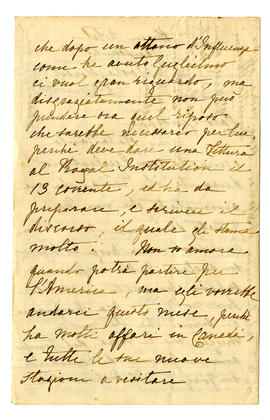 che dopo un attacco d'Influenza
come ha avuto Guglielmo
ci vuol gran riguardo, ma
disgraziatamente non può
prendere ora quel riposo
che sarebbe necessario per lui,
perchè deve dare una lettura
al Royal Institution il
13 corrente, ed ha da
preparare e scrivere il
discorso, il quale gli stanca
molto. Non so ancora
quando potrà partire per
l'America, ma egli vorrebbe
andarci questo mese, perchè
ha molti affari in Canada,
e tutte le sue nuove
stazioni a visitare